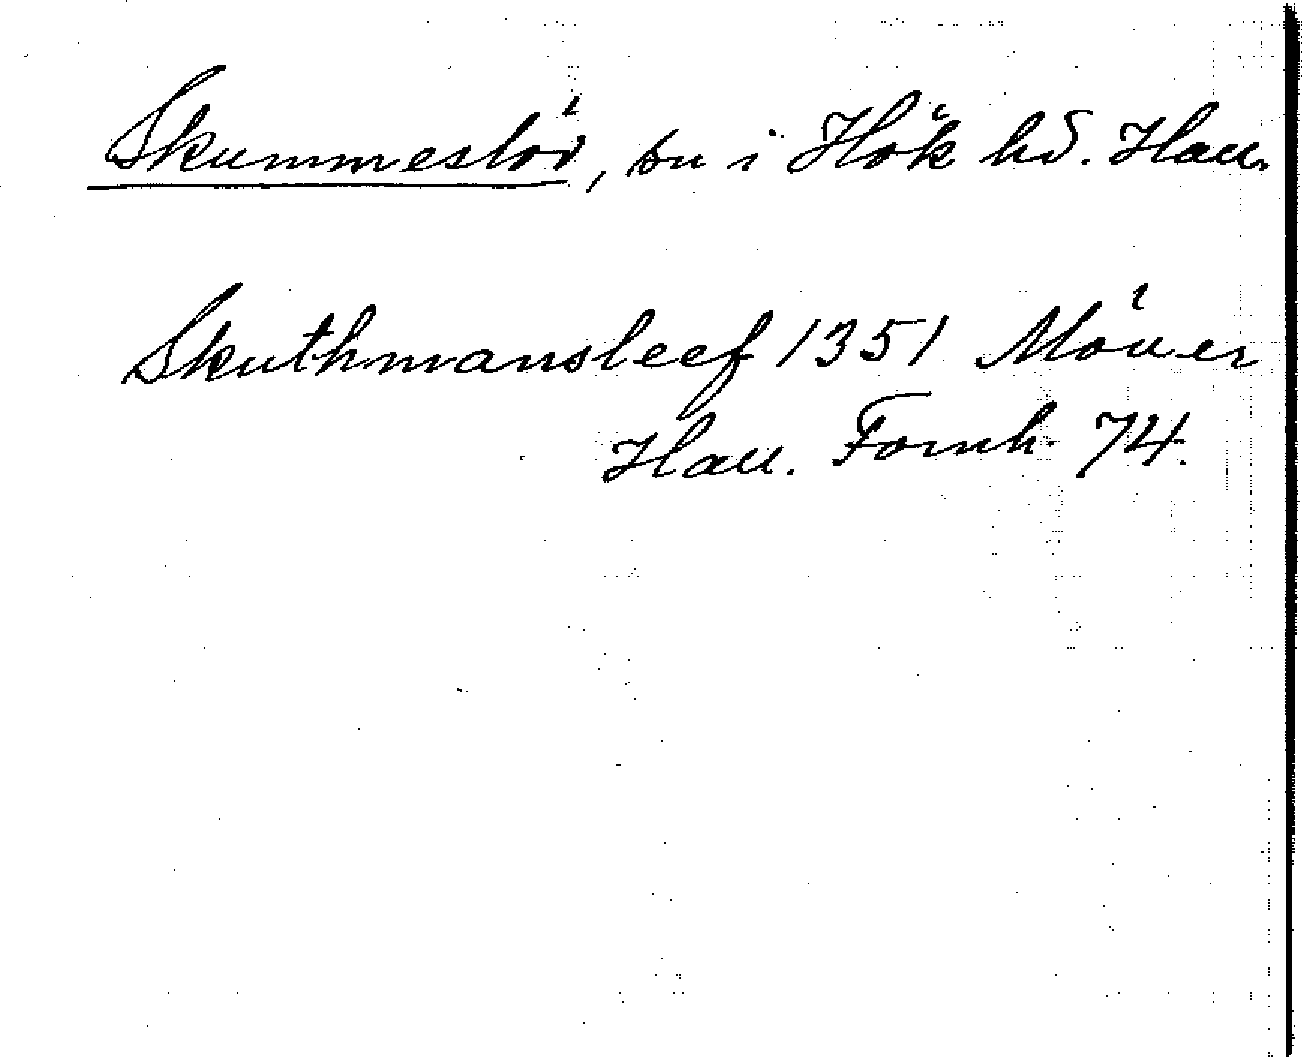 Skummeslöv, sn i Hök hd. Hall.
Skuthmansleef 1351 Möller
Hall. Fornh. 74.